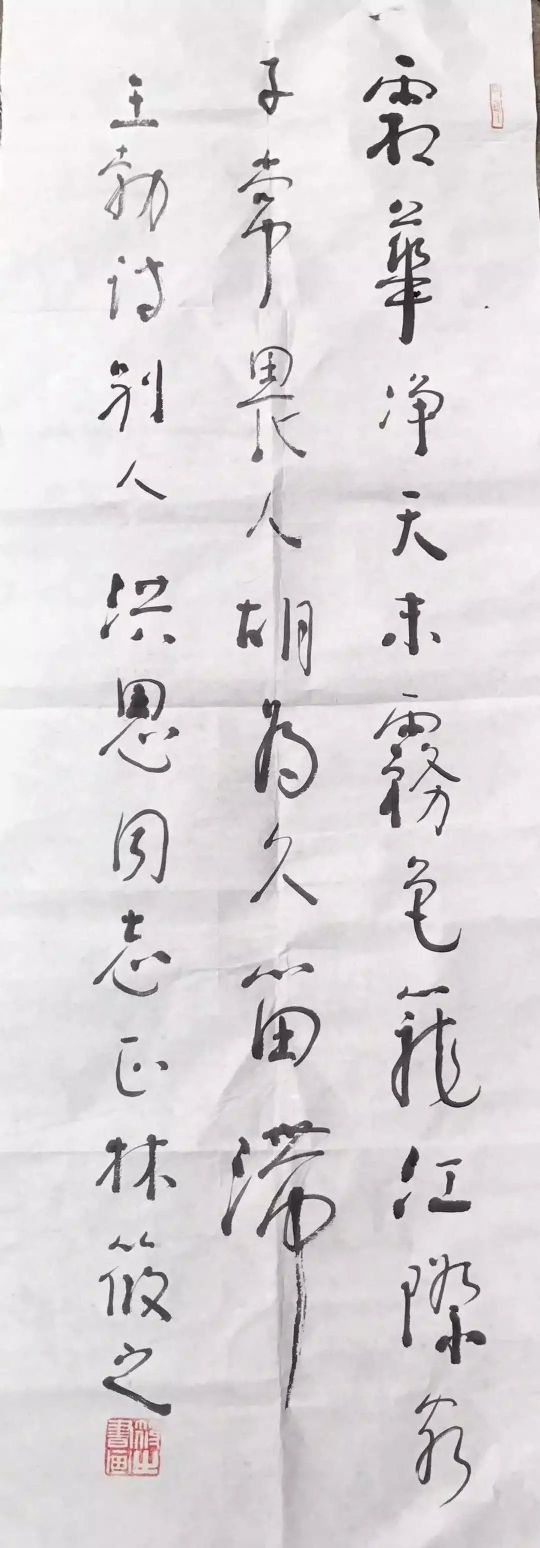 霜華净天末霧色籠江際客
子常畏人胡為久留滯
王勃诗别人 洪恩同志正 林筱之
筱之書画